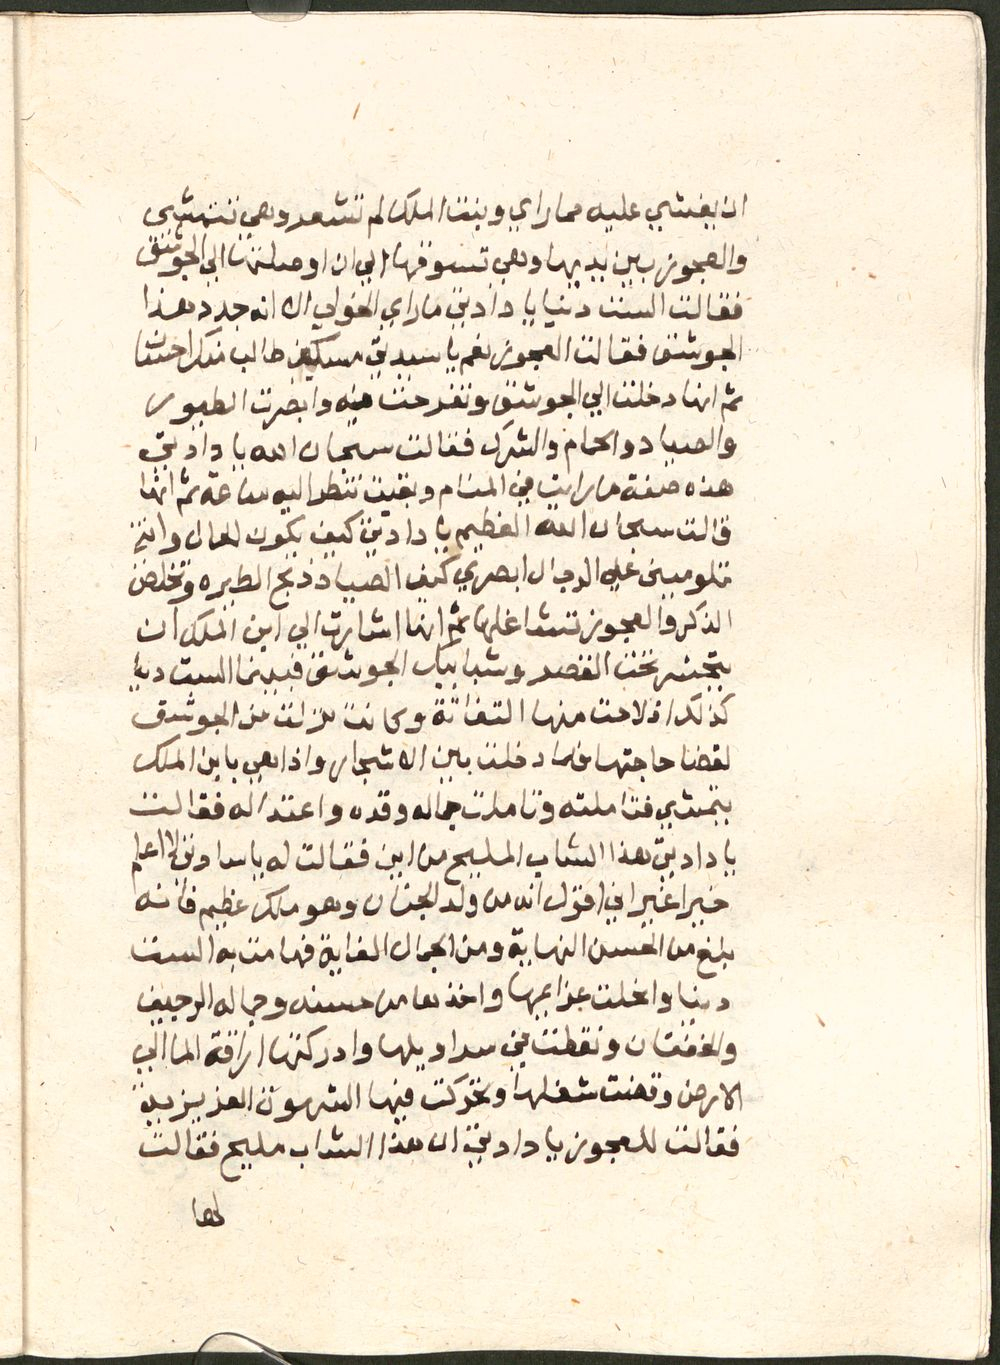 ان يغشي عليه مما راي وبنت الملك لم تشعر وهي تتمشي
والعجوز بين يديها وهي تسوقها الي ان اوصلتها الي الجوشق
فقالت الست دنيا يا دادتي ما راي الخولي الا انه جدد هذا
الجوشق فقالت العجوز نعم يا ستي مسكين طالب منك احسانا
ثم انها دخلت الي الجوشق وتفرجت فيه وابصرت الطيور
والصياد والحمام والشرك فقالت سبحان الله يا دادتي
هذه صفة ما رايت في المنام وبقيت تنظر اليه ساعة ثم انها
قالت سبحان الله العظيم يا دادتي كيف يكون الحال وانتي
تلوميني علي الرجال ابصري كيف الصياد ذبح الطيره وتخلص
الذكر والعجوز تتشاغلها ثم انها اشارت الي ابن الملك ان
يتمشي تحت القصر وشبابيك الجوشق فبينما الست دنيا
كذلك اذ لاحت منها التفاتة وكانت نزلت من الجوشق
لقضا حاجتها فلما دخلت بين الاشجار واذا هي بابن الملك
يتمشي فتاملته وتاملت جماله وقده واعتداله فقالت
يا دادتي هذا الشاب المليح من اين فقالت له يا سادتي لا اعلم
خبرا غير اني اقول انه من ولد الجنان وهو ملك عظيم فانه
بلغ من الحسن النهاية ومن الجمال الغاية فهامت به الست
دنيا وانحلت عزايمها واخذها من حسنه وجماله الرجيف
والخفقان ونقطت في سراويلها وادركتها اراقة الما الي
الارض وقضت شغلها وتحركت فيها الشهوة الغريزية
فقالت للعجوز يا دادتي ان هذا الشاب مليح فقالت
لها